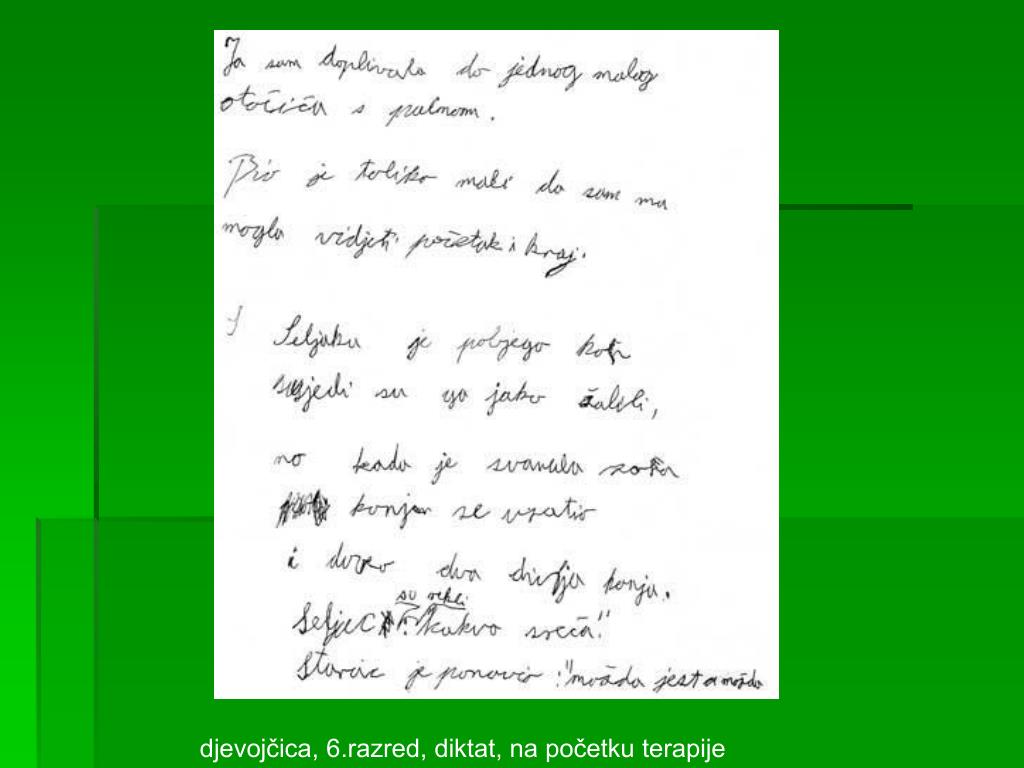 Ja sam doplivala do jednog malog
otočića s palmom.
Bio je toliko mali da sam mu
mogla vidjeti početak i kraj.
S Seljaku je pobjego konj
susjedi su ga jako žalili,
no kada je svanula zora
konj se vratio
i doveo dva divlja konja.
su rekli
Seljac : "kakvo sreća!"
Starac je ponovio : "možda jest a možda
djevojčica, 6.razred, diktat, na početku terapije